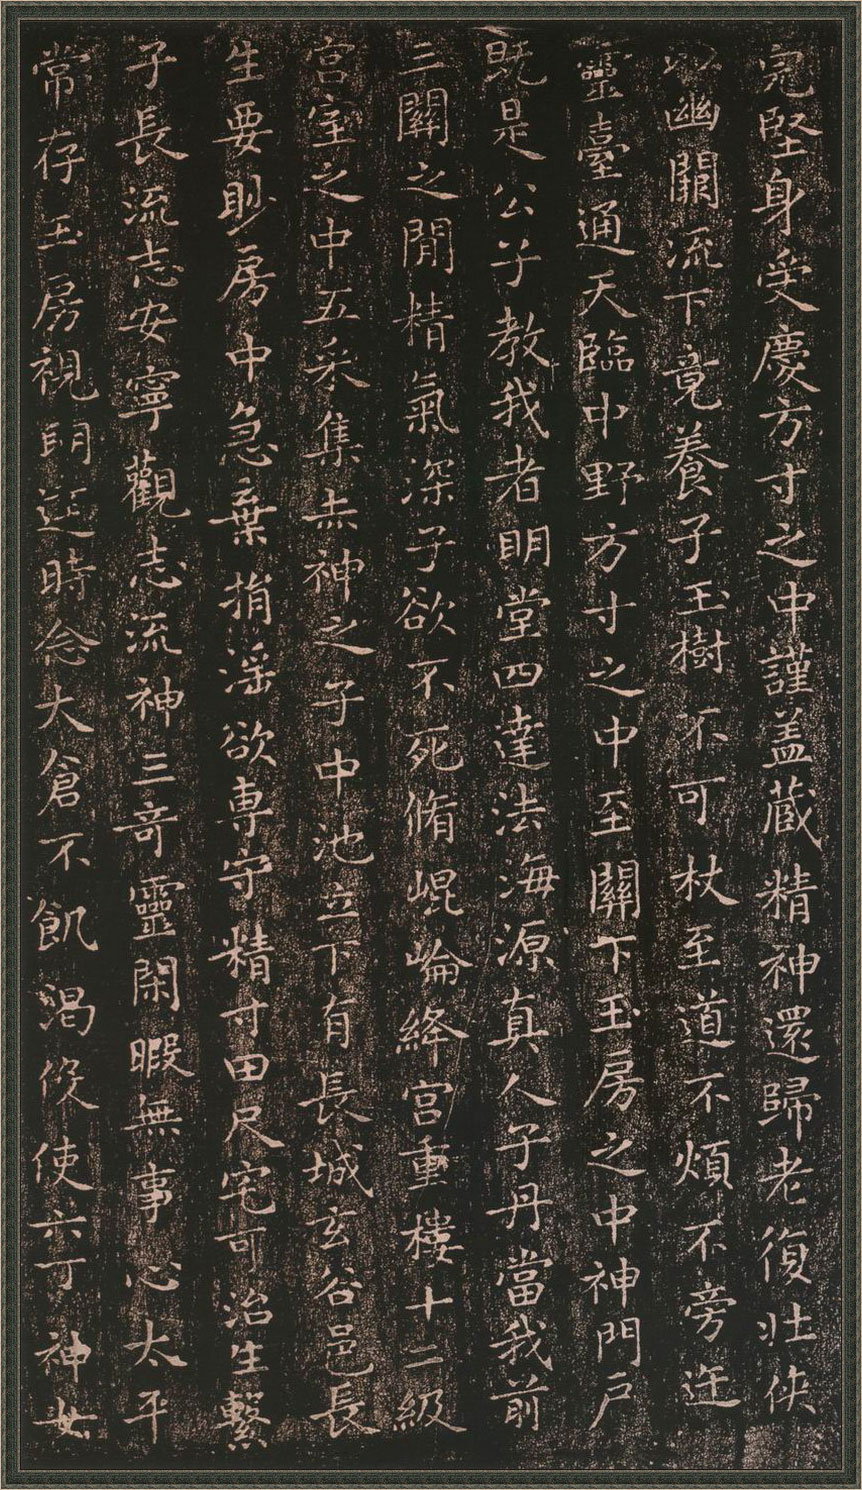 完堅身受慶方寸之中謹盖藏精神還歸老復壯俠
以幽關流下竟養子玉樹不可杖至道不煩不旁迕
靈臺通天臨中野方寸之中至關下玉房之中神門戶
既是公子教我者明堂四達法海源真人子丹當我前
三關之閒精氣深子欲不死脩崐崘絳宮重樓十二級
宮室之中五采集赤神之子中池立下有長城玄谷邑長
生要眇房中急棄捐淫欲専守精寸田尺宅可治生繫
子長流志安寧觀志流神三奇靈閑暇無事心太平
常存玉房視明逹時念大倉不飢渴役使六丁神女